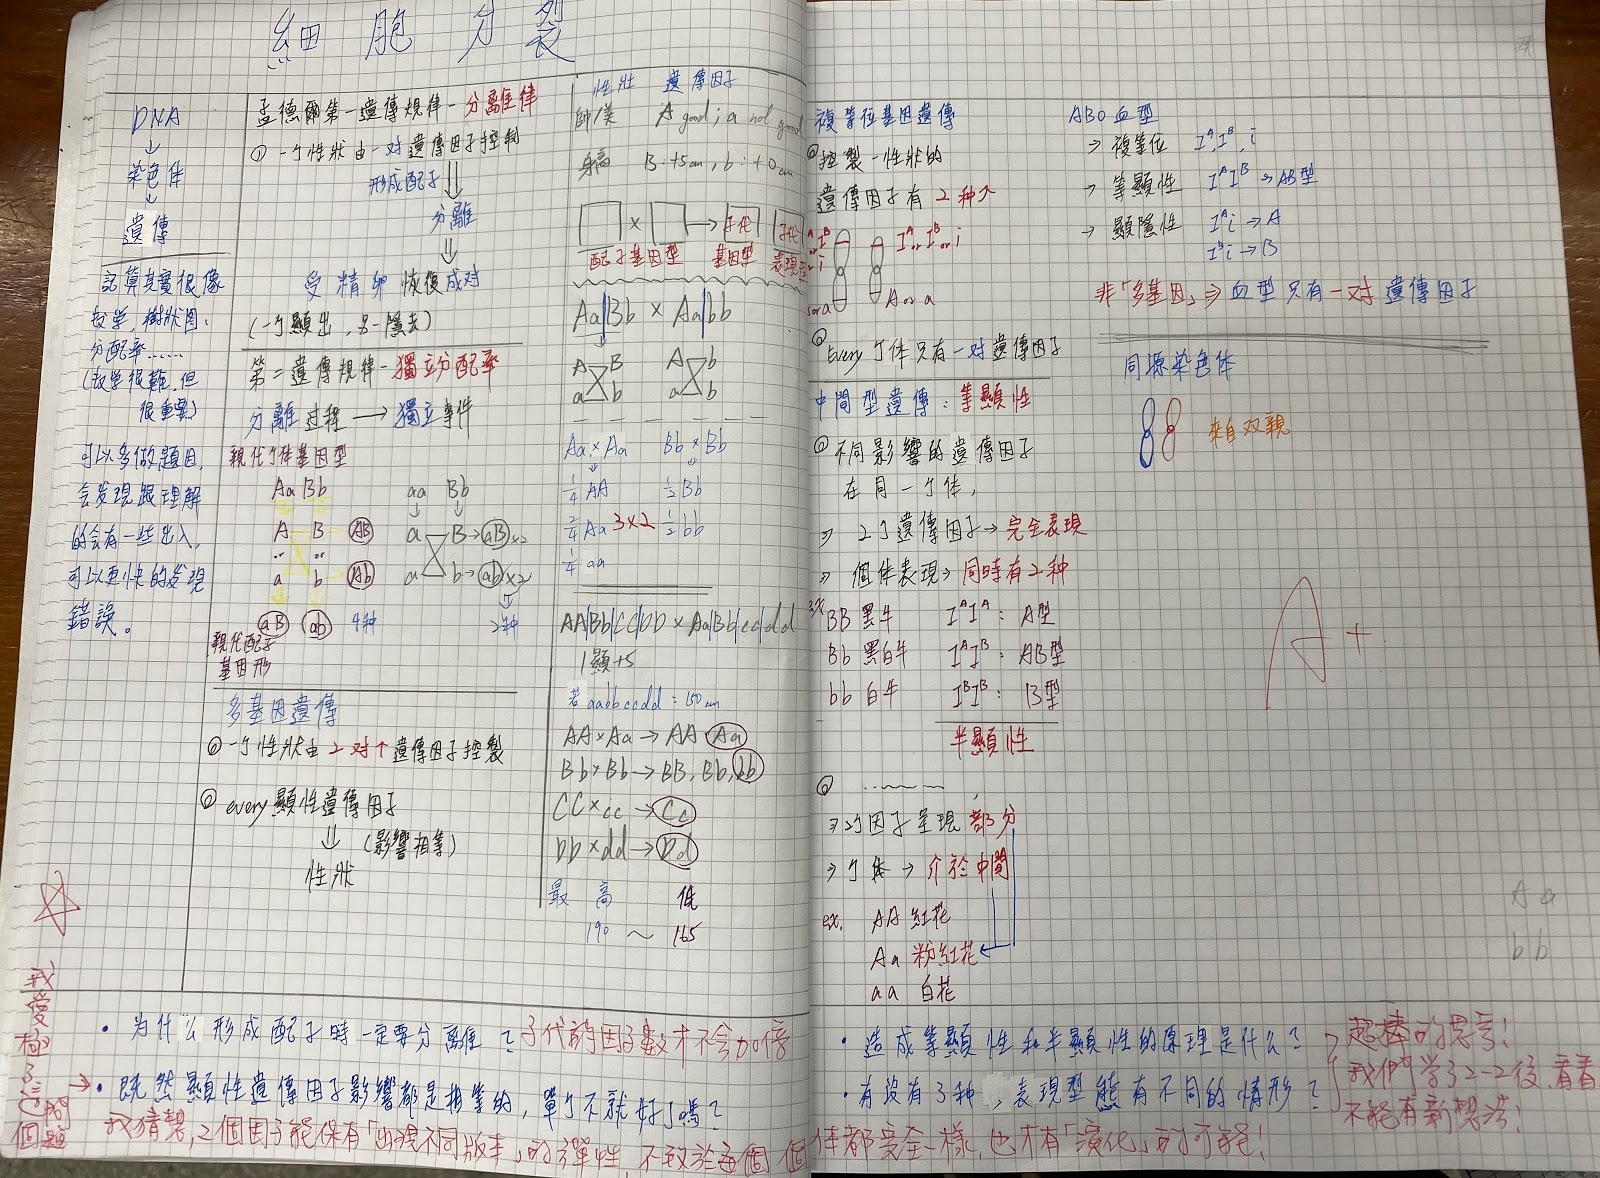 細胞分裂
DNA
↓
染色体
↓
遺傳
記算其實很像
数学,樹狀图、
分配率……
(数学很難,但
很重要)
可以多做題目,
会发現跟理解
的会有一些出入,
可以更快的发現
錯誤。
孟德爾第一遺傳規律-分離律
① 一个性狀由一对遺傳因子控制
形成配子⇓
分離
⇓
受精卵 恢復成对
(一个顯出,另一隱去)
第二遺傳規律-獨立分配率
分離过程→獨立事件
親代个体基因型
Aa Bb aa Bb
A B → AB a B → aB ×2
or or
a b → Ab a b → ab ×2
aB ab 4种 2种
親代配子
基因形
多基因遺傳
① 一个性狀由2对↑遺傳因子控製
② every 顯性遺傳因子
⇓ (影響相等)
性狀
性狀 遺傳因子
帥/美 A good; a not good
身高 B:+5cm, b:+0cm
□ × □ → 子代 子代
配子基因型 基因型 表現型
Aa|Bb × Aa|bb
A B A b
a b a b
Aa × Aa Bb × Bb
1/4 AA 1/2 Bb
2/4 Aa 3×2 1/2 bb
1/4 aa
AA|Bb|CC|DD × Aa|Bb|cc|dd
1顯+5
若aabbccdd=150cm
AA×Aa→AA Aa
Bb×Bb→BB, Bb, bb
CC×cc→Cc
DD×dd→Dd
最高 低
190 ~ 165
複等位基因遺傳
① 控製一性狀的
遺傳因子有2种↑
IA or IB or i IA or IB or i
A or a A or a
② Every 个体只有一对遺傳因子
中間型遺傳:等顯性
① 不同影響的遺傳因子
在同一个体,
⇒ 2个遺傳因子→完全表現
⇒ 個体表現→同時有2种
BB 黑牛 IAIA:A型
Bb 黑白牛 IAIB:AB型
bb 白牛 IBIB:B型
半顯性
② ……,
⇒2个因子呈現部分
⇒个体→介於中間
ex. AA 紅花
Aa 粉紅花
aa 白花
ABO血型
⇒ 複等位 IA, IB, i
⇒ 等顯性 IAIB→AB型
→ 顯隱性 IAi→A
IBi→B
非「多基因」⇒血型只有一对遺傳因子
同源染色体
來自双親
A+
Aa
bb
我愛極了這兩個問題
• 为什么形成配子時一定要分離?子代的因子數才不会加倍
• 既然顯性遺傳因子影響都是相等的,單个不就好了嗎?
我猜想,2個因子能保有「出現不同版本」的彈性,不致於每個個体都完全一樣,也才有「演化」的可能!
• 造成等顯性和半顯性的原理是什么?
• 有没有3种,表現型態有不同的情形?
超棒的思考!
我們學了2-2後,看看
不能有新想法!